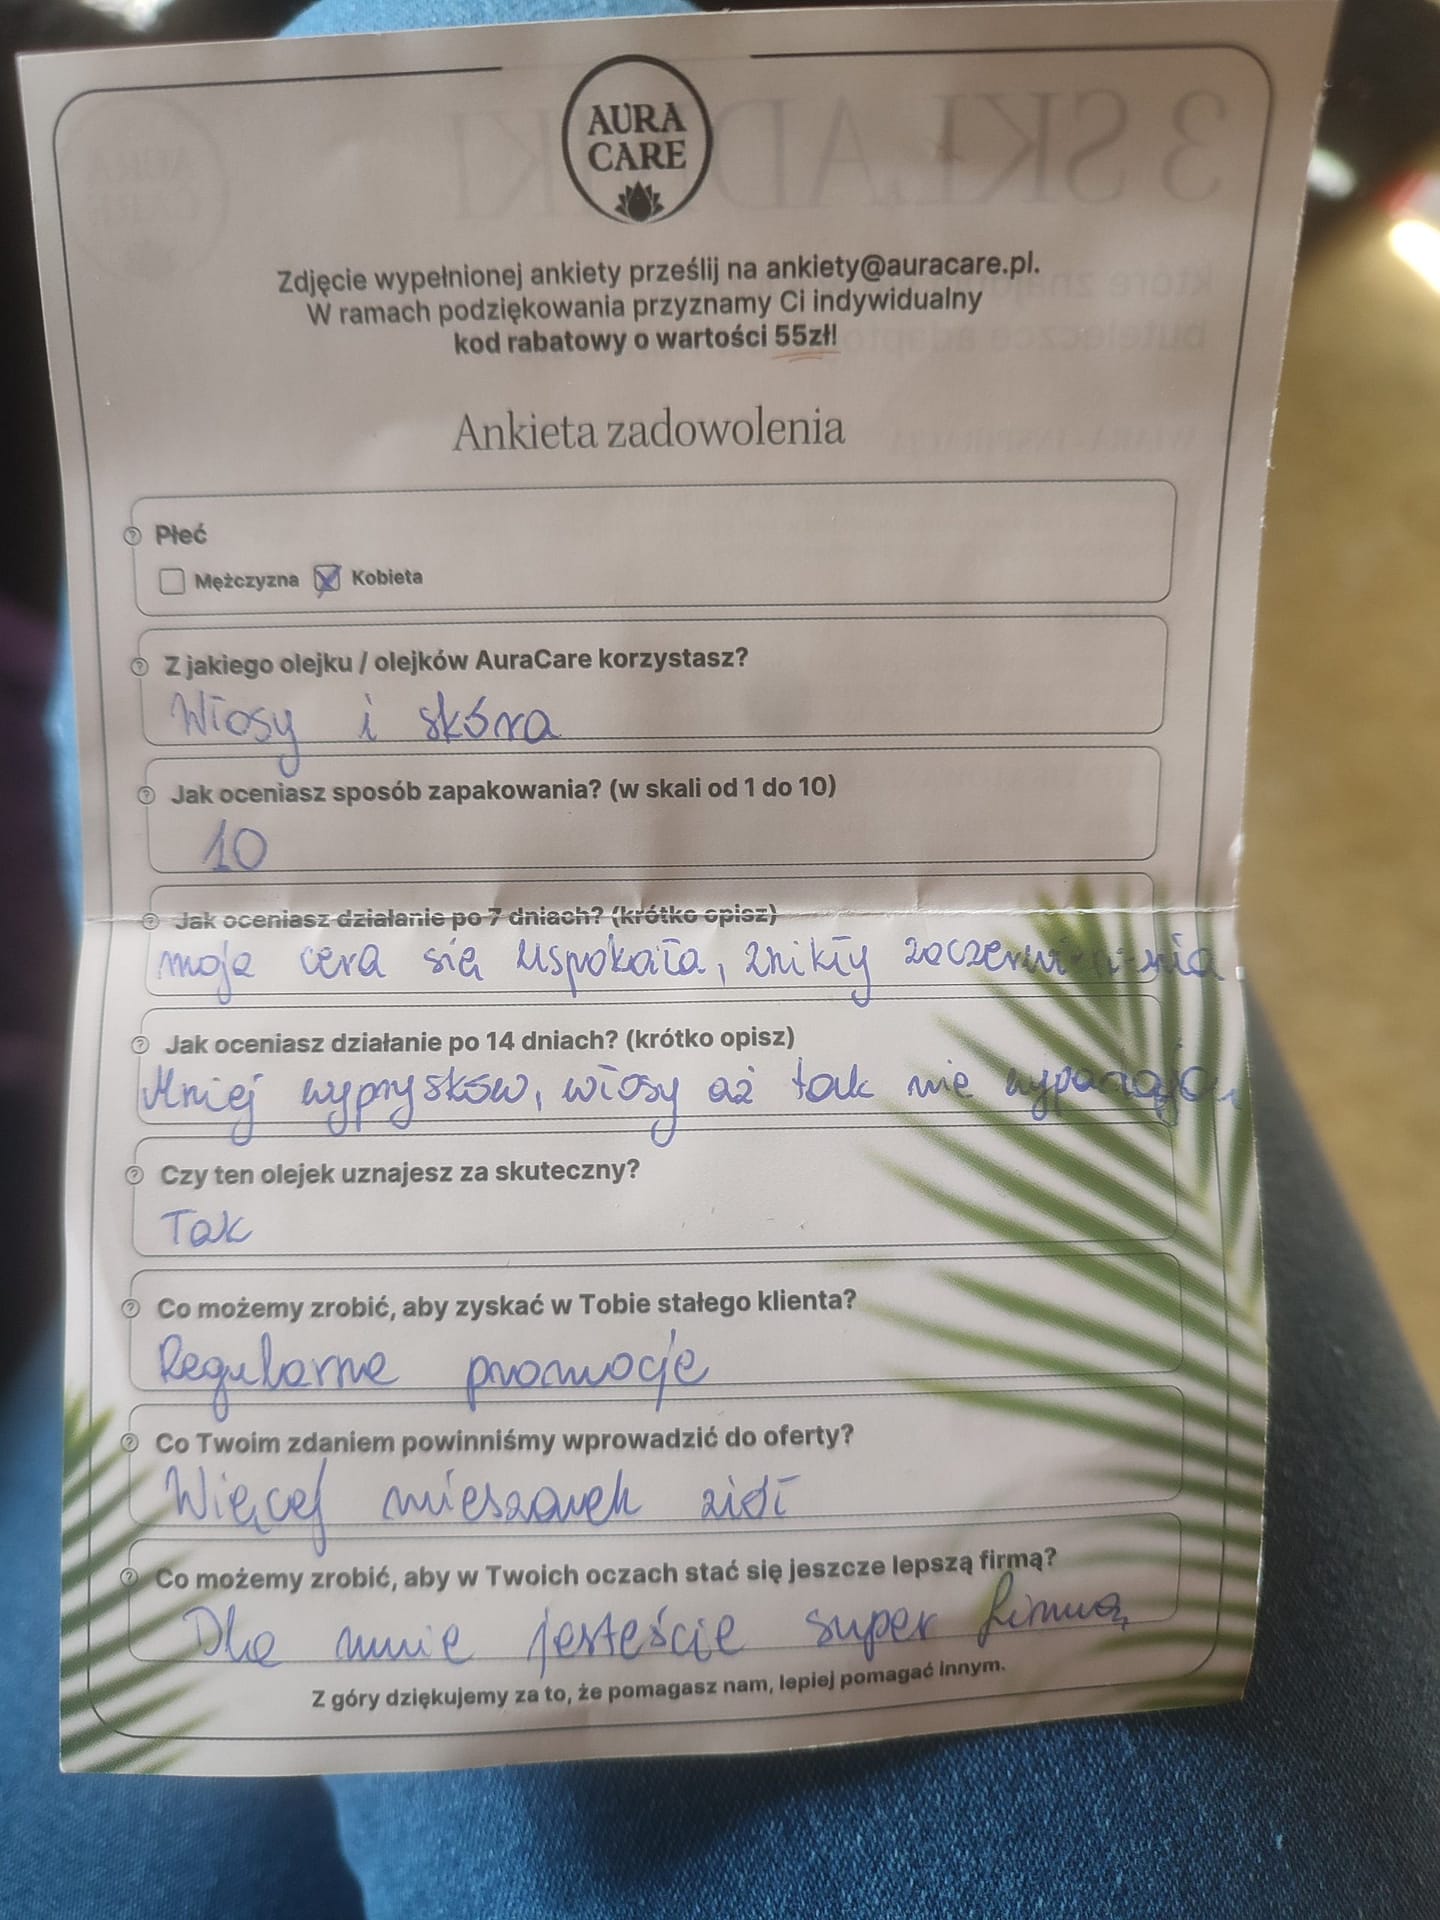 AURA
CARE
Zdjęcie wypełnionej ankiety prześlij na ankiety@auracare.pl.
W ramach podziękowania przyznamy Ci indywidualny
kod rabatowy o wartości 55zł!
Ankieta zadowolenia
Płeć
Mężczyzna Kobieta
Z jakiego olejku / olejków AuraCare korzystasz?
Włosy i skóra
Jak oceniasz sposób zapakowania? (w skali od 1 do 10)
10
Jak oceniasz działanie po 7 dniach? (krótko opisz)
moja cera się uspokaiła, znikły
Jak oceniasz działanie po 14 dniach? (krótko opisz)
Mniej wyprysków, włosy aż tak nie wypadają.
Czy ten olejek uznajesz za skuteczny?
Tak
Co możemy zrobić, aby zyskać w Tobie stałego klienta?
Regularne promocje
Co Twoim zdaniem powinniśmy wprowadzić do oferty?
Więcej mieszanek ziół
Co możemy zrobić, aby w Twoich oczach stać się jeszcze lepszą firmą?
Dla mnie jesteście super firmą
Z góry dziękujemy za to, że pomagasz nam, lepiej pomagać innym.